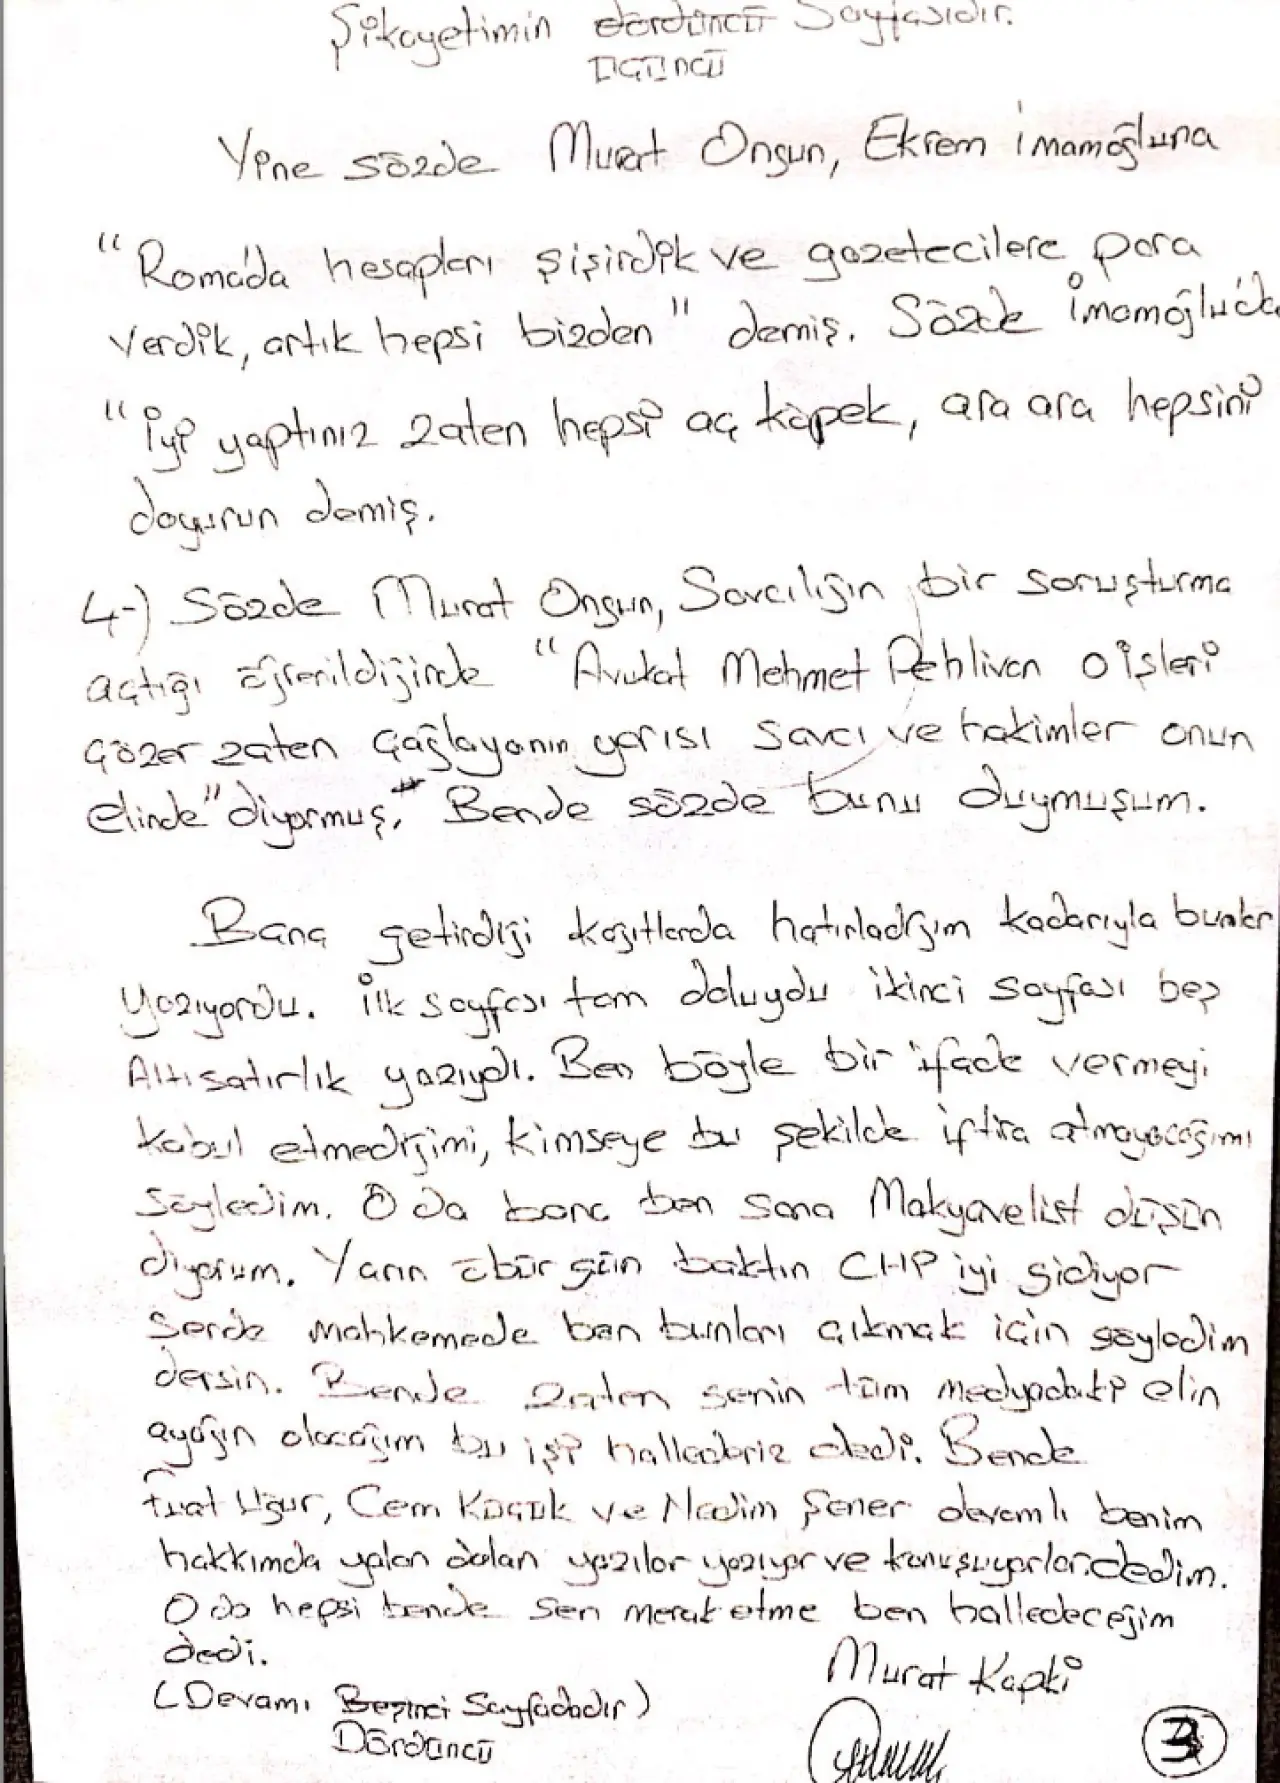 Şikayetimin dördüncü Sayfasıdır.
ÜÇÜNCÜ
Yine sözde Murat Ongun, Ekrem İmamoğluna
"Roma'da hesapları şişirdik ve gazetecilere para
verdik, artık hepsi bizden" demiş. Sözde İmamoğlu'da
"İyi yaptınız zaten hepsi aç köpek, ara ara hepsini
doyurun demiş.
4-) Sözde Murat Ongun, Savcılığın bir soruşturma
açtığı öğrenildiğinde "Avukat Mehmet Pehlivan o işleri
çözer zaten Çağlayanın yarısı savcı ve hakimler onun
elinde" diyormuş." Bende sözde bunu duymuşum.
Bana getirdiği kağıtlarda hatırladığım kadarıyla bunlar
yazıyordu. İlk sayfası tam doluydu ikinci sayfası beş
Altı satırlık yazıydı. Ben böyle bir ifade vermeyi
kabul etmediğimi, kimseye bu şekilde iftira atmayacağımı
söyledim. O da bana ben sana Makyavelist düşün
diyorum. Yarın öbür gün baktın CHP iyi gidiyor
Sende mahkemede ben bunları çıkmak için söyledim
dersin. Bende zaten senin tüm medyadaki elin
ayağın olacağım bu işi hallederiz dedi. Bende
Fuat Uğur, Cem Küçük ve Nedim Şener devamlı benim
hakkımda yalan dolan yazılar yazıyor ve konuşuyorlar dedim.
O da hepsi bende sen merak etme ben halledeceğim
dedi.
Murat Kapki
(Devamı Beşinci Sayfadadır)
Dördüncü
3